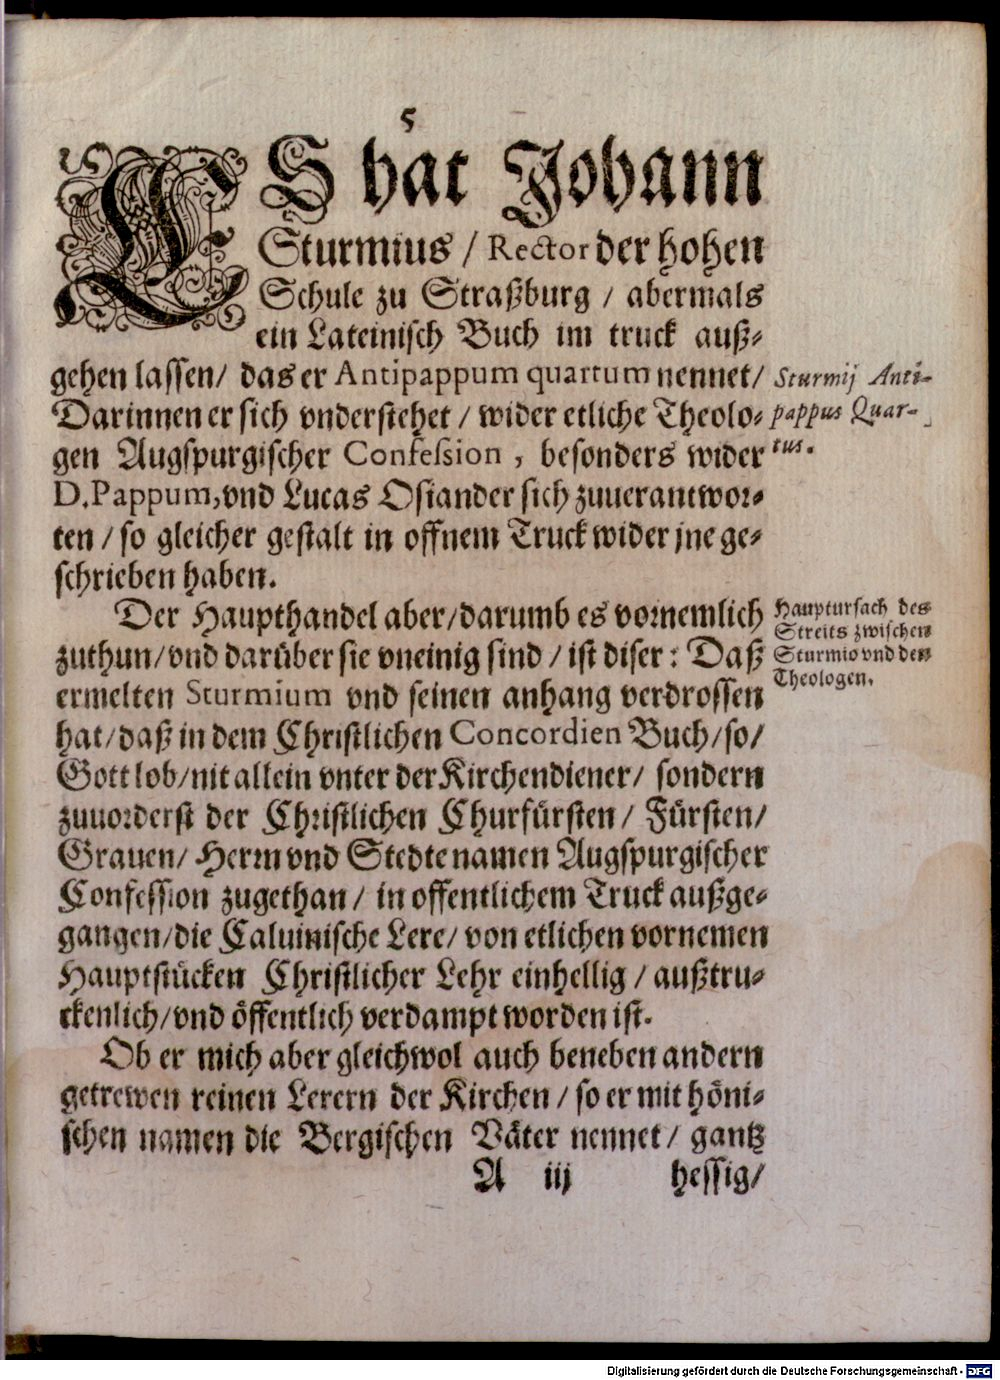 5
ES hat Johann
Sturmius / Rector der hohen
Schule zu Straßburg / abermals
ein Lateinisch Buch im truck auß-
gehen lassen / das er Antipappum quartum nennet /
Darinnen er sich vnderstehet / wider etliche Theolo-
gen Augspurgischer Confession, besonders wider
D. Pappum, vnd Lucas Osiander sich zuuerantwor-
ten / so gleicher gestalt in offnem Truck wider jne ge-
schrieben haben.
Sturmij Anti-
pappus Quar-
tus.
Der Haupthandel aber / darumb es vornemlich
zuthun / vnd darüber sie vneinig sind / ist diser: Daß
ermelten Sturmium vnd seinen anhang verdrossen
hat / daß in dem Christlichen Concordien Buch / so /
Gott lob / nit allein vnter der Kirchendiener / sondern
zuuorderst der Christlichen Churfürsten / Fürsten /
Grauen / Herrn vnd Stedte namen Augspurgischer
Confession zugethan / in offentlichem Truck außge-
gangen / die Caluinische Lere / von etlichen vornemen
Hauptstücken Christlicher Lehr einhellig / außtru-
ckenlich / vnd öffentlich verdampt worden ist.
Hauptursach des
Streits zwischen
Sturmio vnd den
Theologen.
Ob er mich aber gleichwol auch beneben andern
getrewen reinen Lerern der Kirchen / so er mit höni-
schen namen die Bergischen Väter nennet / gantz
A iij hessig /
Digitalisierung gefördert durch die Deutsche Forschungsgemeinschaft - DFG